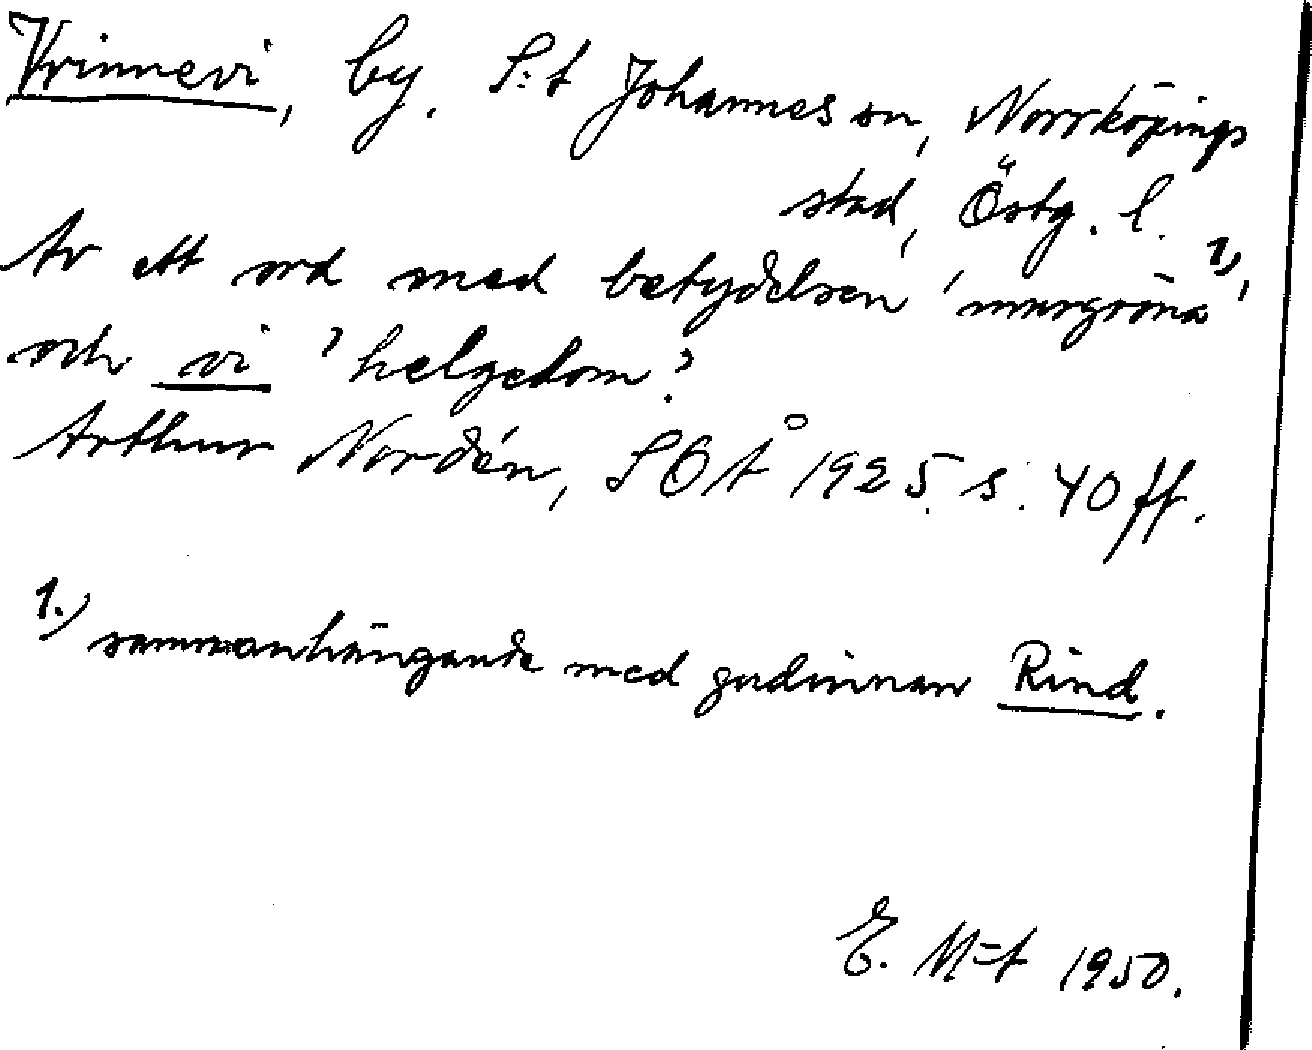 Vrinnevi, by. S:t Johannes sn, Norrköpings
stad, Östg. l.
Av ett ord med betydelsen 'murgröna' 1),
och vi 'helgedom'.
Arthur Nordén, SOÅ 1925. s. 40 ff.
1.) sammanhängande med gudinnan Rind.
E. M=t 1950.